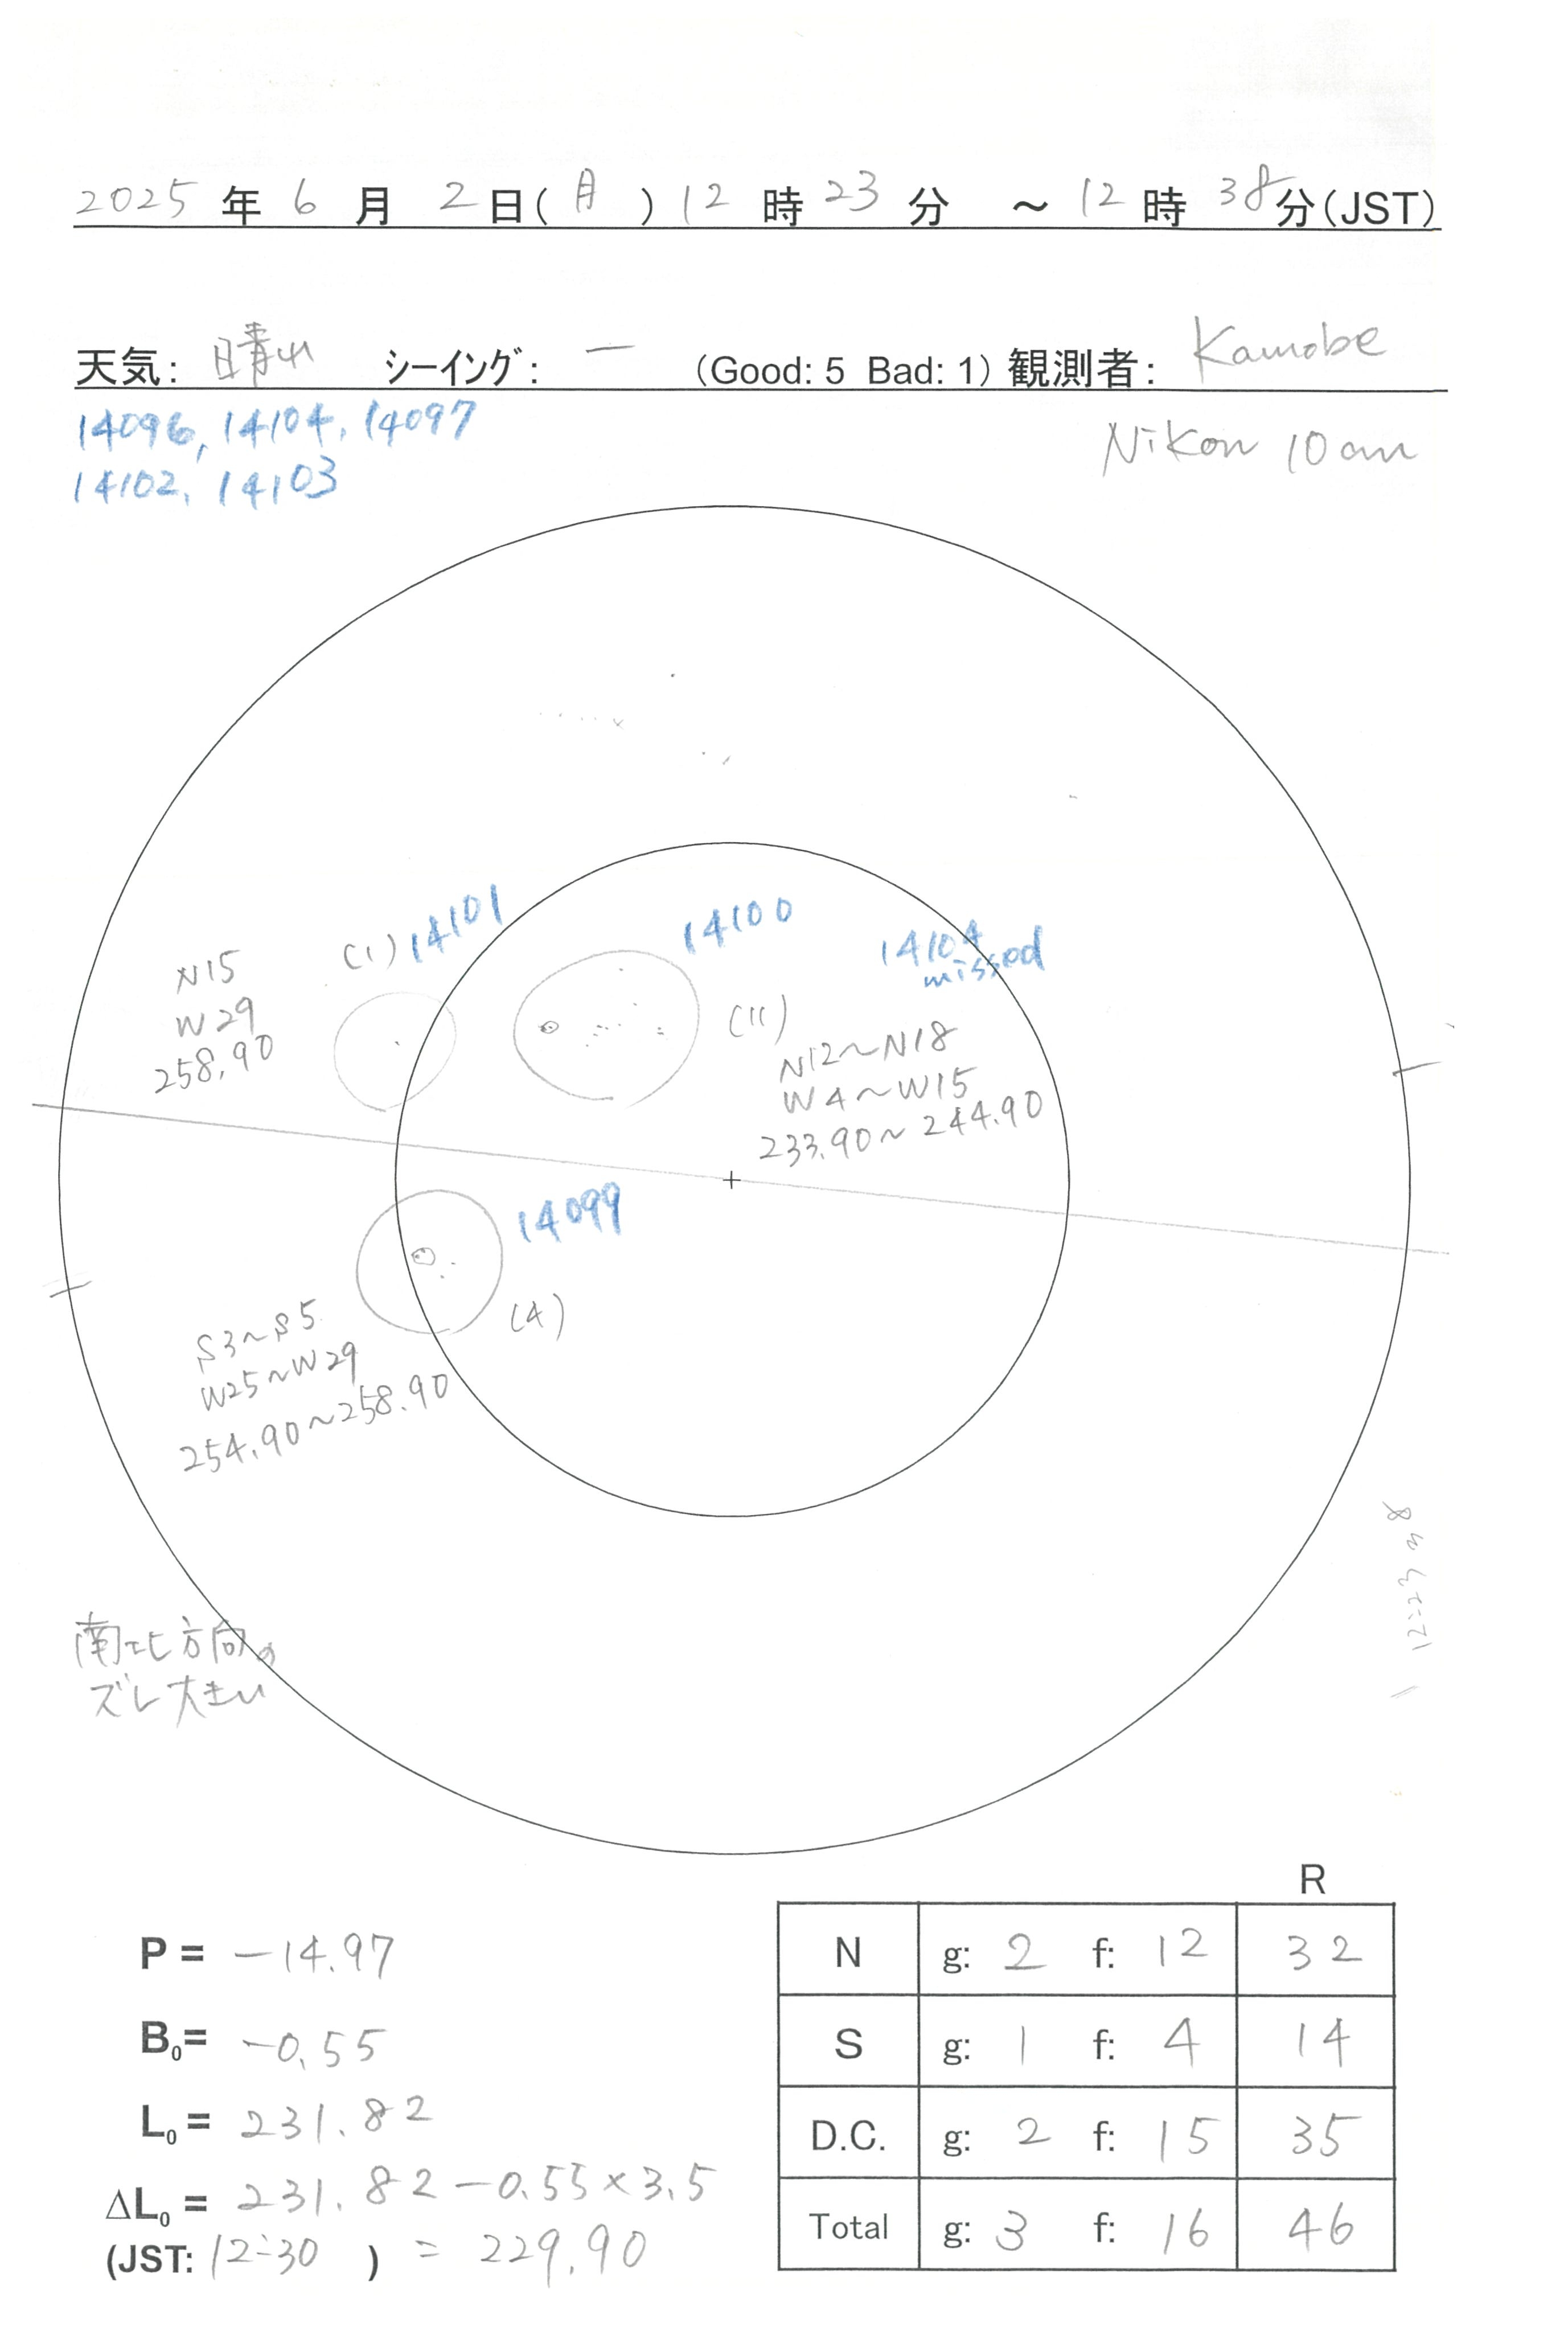 2025 年 6 月 2 日(月) 12 時 23 分 ～ 12 時 38 分(JST)
天気: 晴れ シーイング: — (Good: 5 Bad: 1) 観測者: Kamobe
14096, 14104, 14097
14102, 14103
Nikon 10cm
N15
W29
258.90
(1) 14101
14100
(11)
14104
missed
N12～N18
W4～W15
233.90～244.90
14099
(4)
S3～S5
W25～W29
254.90～258.90
南北方向の
ズレ大きい
P = −14.97
B0= −0.55
L0= 231.82
ΔL0 = 231.82 − 0.55×3.5
(JST: 12:30 ) = 229.90
R
N g: 2 f: 12 32
S g: 1 f: 4 14
D.C. g: 2 f: 15 35
Total g: 3 f: 16 46